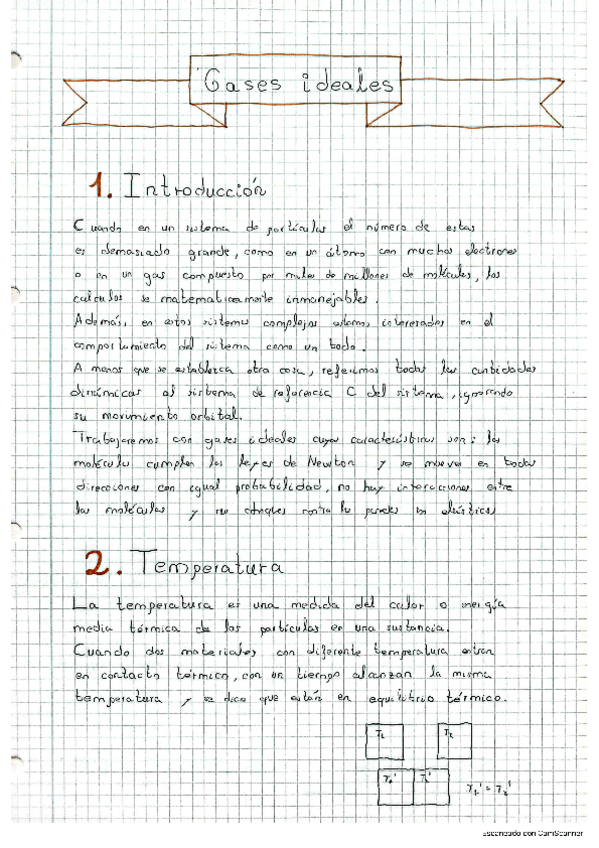 Gases ideales
1. Introducción
Cuando en un sistema de partículas el número de estas
es demasiado grande, como en un átomo con muchos electrones
o en un gas compuesto por miles de millones de moléculas, los
calculos se matematicamente inmanejables.
Además, en estos sistemas complejos estamos interesados en el
comportamiento del sistema como un todo.
A menos que se establezca otra cosa, referimos todas las cantidades
dinámicas al sistema de referencia C del sistema, ignorando
su movimiento orbital.
Trabajaremos con gases ideales cuyas características son: las
moléculas cumplen las leyes de Newton y se mueven en todas
direcciones con igual probabilidad, no hay interacciones entre
las moléculas y no choques contra la paredes son elásticos
2. Temperatura
La temperatura es una medida del calor o energía
media térmica de las partículas en una sustancia.
Cuando dos materiales con diferente temperatura entran
en contacto térmico, con un tiempo alcanzan la misma
temperatura y se dice que están en equilibrio térmico.
T₁ T₂
T₁' T₂' T₁' = T₂'
Escaneado con CamScanner